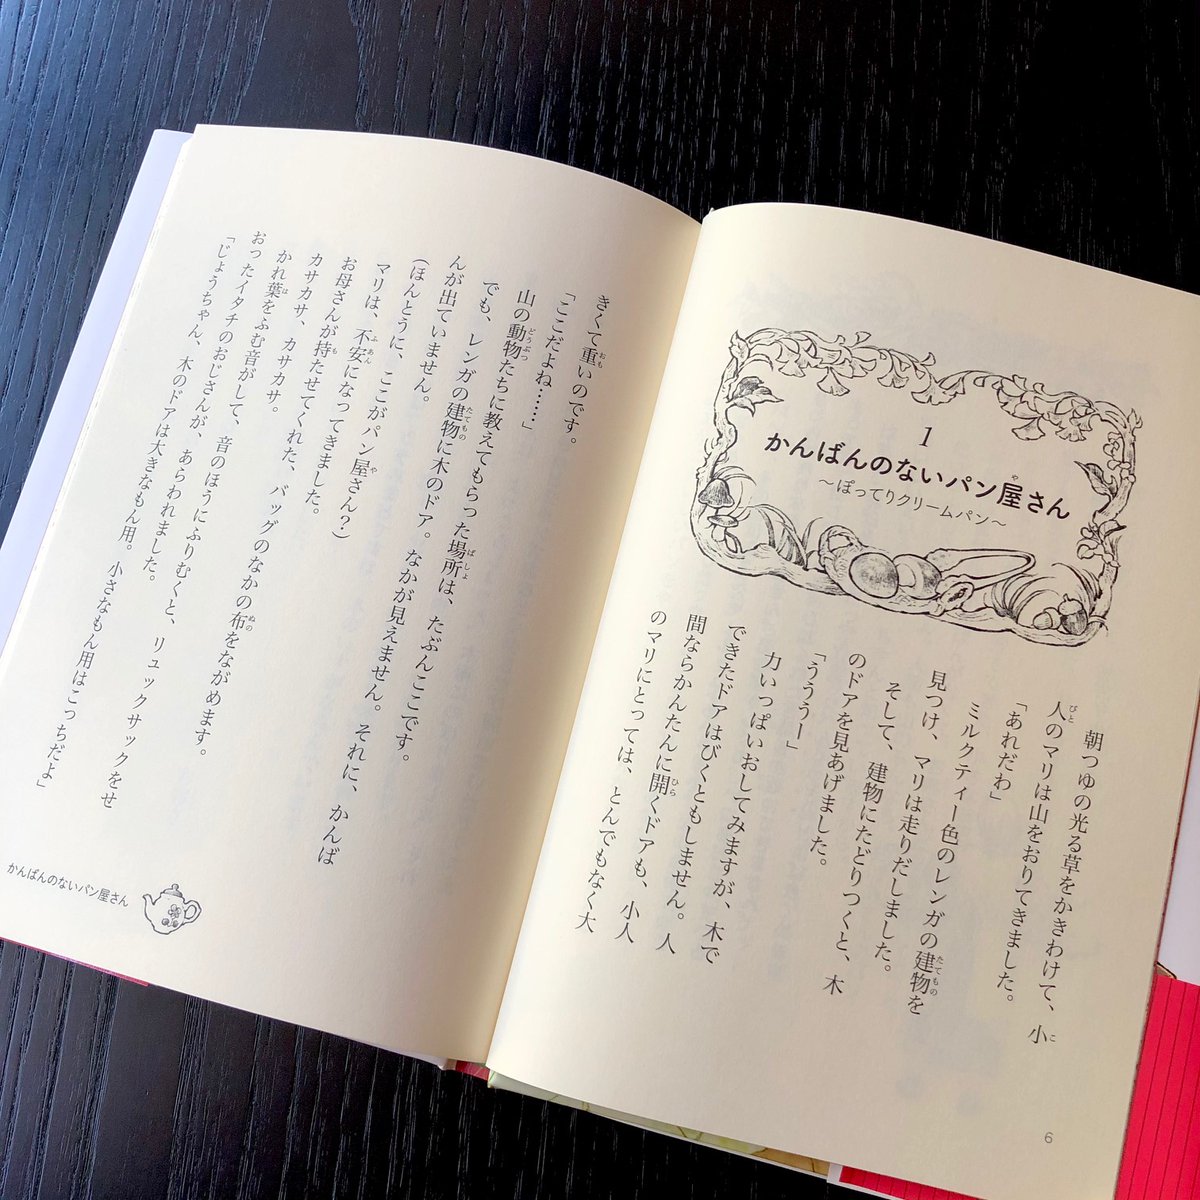 1
かんばんのないパン屋さん
〜ぽってりクリームパン〜
朝つゆの光る草をかきわけて、小
人のマリは山をおりてきました。
「あれだわ」
ミルクティー色のレンガの建物を
見つけ、マリは走りだしました。
そして、建物にたどりつくと、木
のドアを見あげました。
「うううー」
力いっぱいおしてみますが、木で
できたドアはびくともしません。人
間ならかんたんに開くドアも、小人
のマリにとっては、とんでもなく大
6
きくて重いのです。
「ここだよね……」
山の動物たちに教えてもらった場所は、たぶんここです。
でも、レンガの建物に木のドア。なかが見えません。それに、かんば
んが出ていません。
(ほんとうに、ここがパン屋さん?)
マリは、不安になってきました。
お母さんが持たせてくれた、バッグのなかの布をながめます。
カサカサ、カサカサ。
かれ葉をふむ音がして、音のほうにふりむくと、リュックサックをせ
おったイタチのおじさんが、あらわれました。
「じょうちゃん、木のドアは大きなもん用。小さなもん用はこっちだよ」
かんばんのないパン屋さん